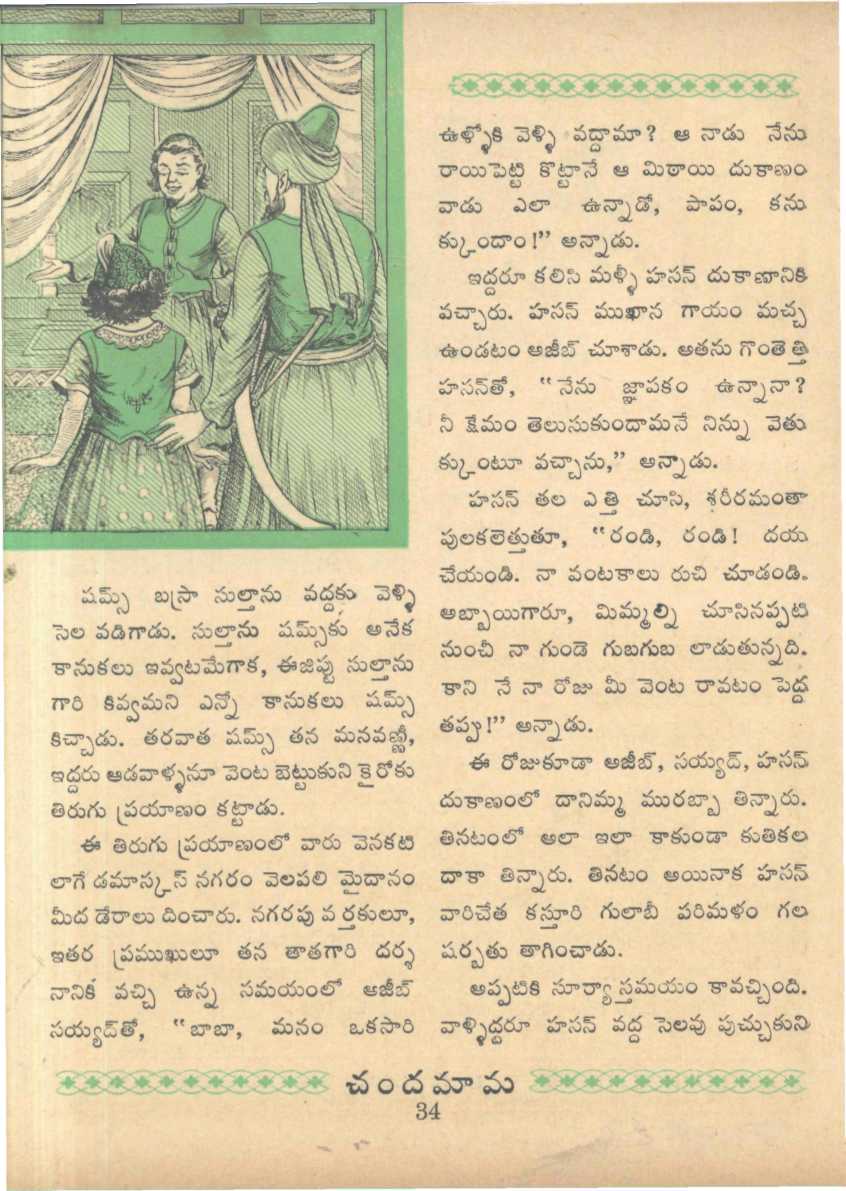 షమ్స్ బస్రా సుల్తాను వద్దకు వెళ్ళి
సెల వడిగాడు. సుల్తాను షమ్స్‌కు అనేక
కానుకలు ఇవ్వటమేగాక, ఈజిప్టు సుల్తాను
గారి కివ్వమని ఎన్నో కానుకలు షమ్స్
కిచ్చాడు. తరవాత షమ్స్ తన మనవణ్ణీ,
ఇద్దరు ఆడవాళ్ళనూ వెంట బెట్టుకుని కైరోకు
తిరుగు ప్రయాణం కట్టాడు.
ఈ తిరుగు ప్రయాణంలో వారు వెనకటి
లాగే డమాస్కస్ నగరం వెలపలి మైదానం
మీద డేరాలు దించారు. నగరపు వర్తకులూ,
ఇతర ప్రముఖులూ తన తాతగారి దర్శ
నానికి వచ్చి ఉన్న సమయంలో అజీబ్
సయ్యద్‌తో, “బాబా, మనం ఒకసారి
ఉళ్ళోకి వెళ్ళి వద్దామా? ఆ నాడు నేను
రాయిపెట్టి కొట్టానే ఆ మిఠాయి దుకాణం
వాడు ఎలా ఉన్నాడో, పాపం, కను
క్కుందాం!” అన్నాడు.
ఇద్దరూ కలిసి మళ్ళీ హసన్ దుకాణానికి
వచ్చారు. హసన్ ముఖాన గాయం మచ్చ
ఉండటం అజీబ్ చూశాడు. అతను గొంతెత్తి
హసన్‌తో, “నేను జ్ఞాపకం ఉన్నానా?
నీ క్షేమం తెలుసుకుందామనే నిన్ను వెతు
క్కుంటూ వచ్చాను,” అన్నాడు.
హసన్ తల ఎత్తి చూసి, శరీరమంతా
పులకలెత్తుతూ, “రండి, రండి! దయ
చేయండి. నా వంటకాలు రుచి చూడండి.
అబ్బాయిగారూ, మిమ్మల్ని చూసినప్పటి
నుంచీ నా గుండె గుబగుబ లాడుతున్నది.
కాని నే నా రోజు మీ వెంట రావటం పెద్ద
తప్పు!” అన్నాడు.
ఈ రోజుకూడా అజీబ్, సయ్యద్, హసన్
దుకాణంలో దానిమ్మ మురబ్బా తిన్నారు.
తినటంలో అలా ఇలా కాకుండా కుతికల
దాకా తిన్నారు. తినటం అయినాక హసన్
వారిచేత కస్తూరి గులాబీ పరిమళం గల
షర్బతు తాగించాడు.
అప్పటికి సూర్యాస్తమయం కావచ్చింది.
వాళ్ళిద్దరూ హసన్ వద్ద సెలవు పుచ్చుకుని
చందమామ
34